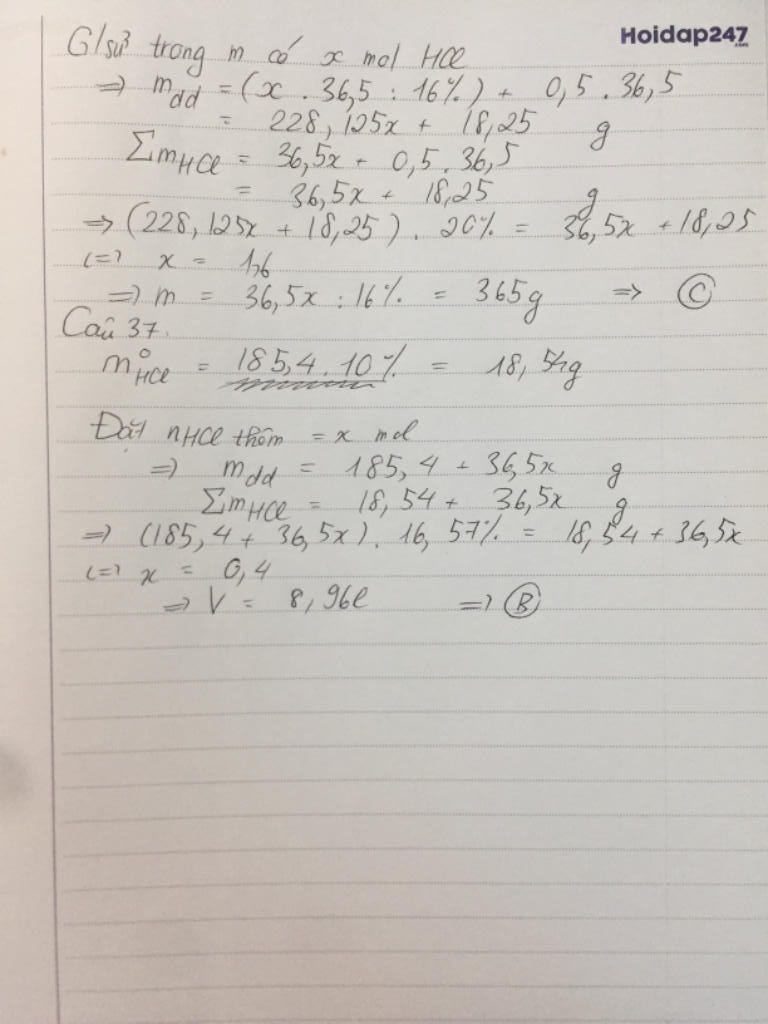 Hoidap247
.com
G/sử trong m có x mol HCl
=> mdd = (x . 36,5 : 16%) + 0,5 . 36,5
= 228,125x + 18,25 g
∑mHCl = 36,5x + 0,5 . 36,5
= 36,5x + 18,25 g
=> (228,125x + 18,25) . 20% = 36,5x + 18,25
<=> x = 1,6
=> m = 36,5x : 16% = 365g => C
Câu 37.
m°HCl = 185,4 . 10% = 18,54g
Đặt nHCl thêm = x mol
=> mdd = 185,4 + 36,5x g
∑mHCl = 18,54 + 36,5x g
=> (185,4 + 36,5x) . 16,57% = 18,54 + 36,5x
<=> x = 0,4
=> V = 8,96l => B